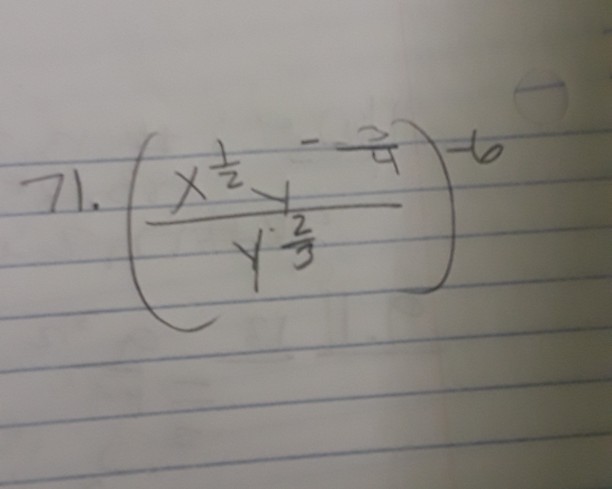 71. (x^{1/2} y^{-3/4} / y^{2/3})^{-6}